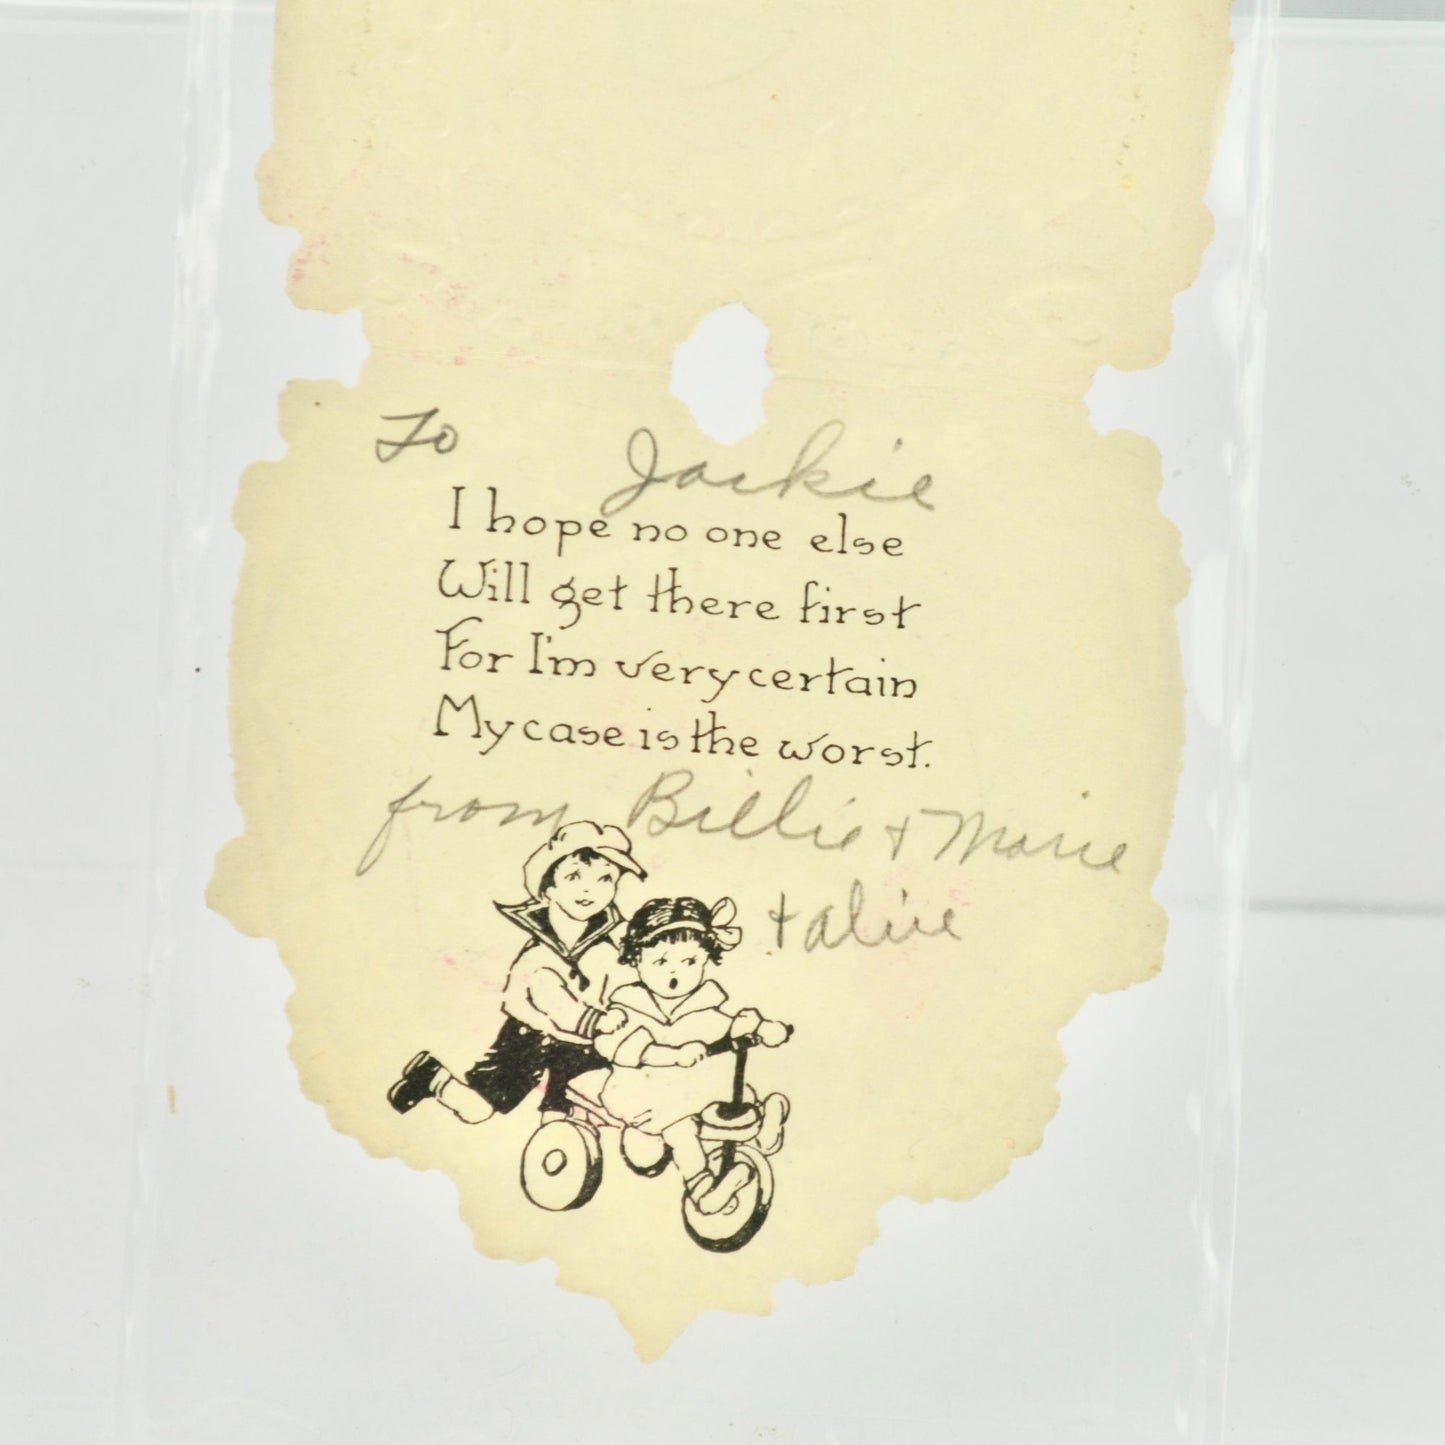 To Jackie
I hope no one else
Will get there first
For I'm very certain
My case is the worst.
from Billie + Marie
+ Alice